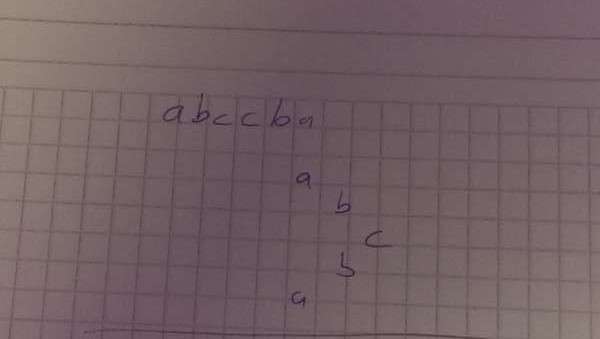 abccba
a
b
c
b
a